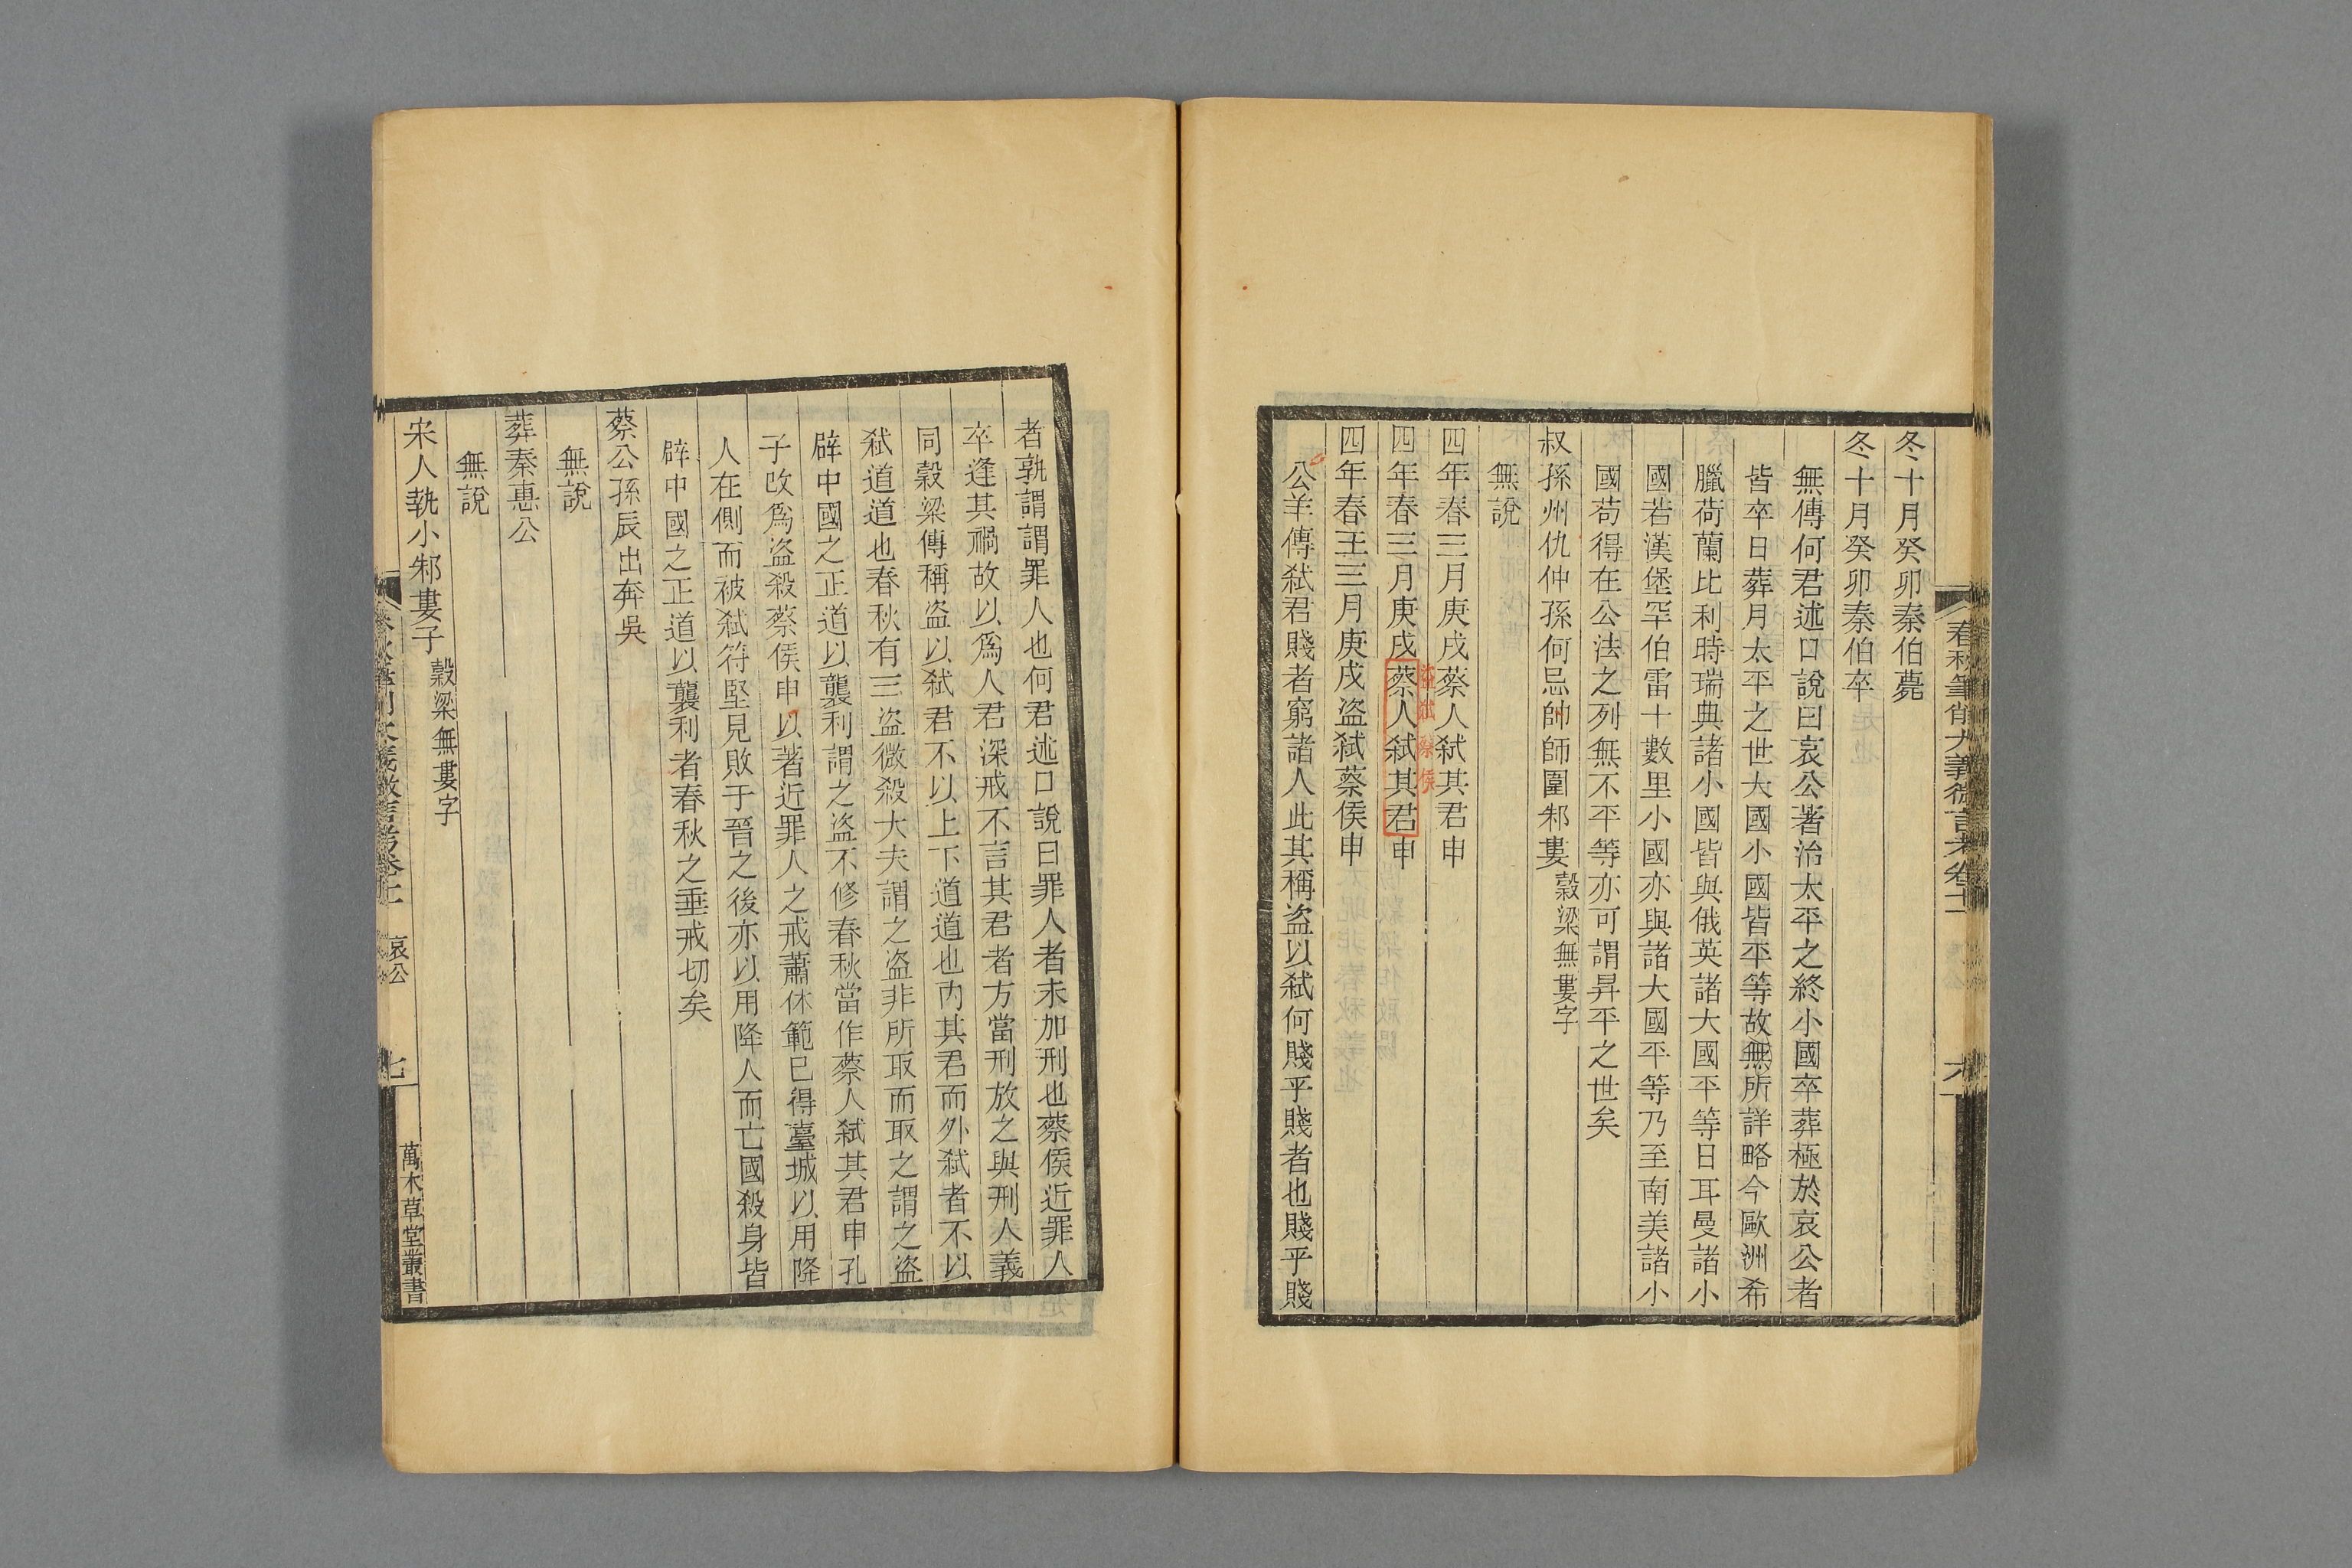 春秋筆削大義微言考卷十一
六
冬十月癸卯秦伯薨
冬十月癸卯秦伯卒
無傳何君述口說曰哀公著治太平之終小國卒葬極於哀公者
皆卒日葬月太平之世大國小國皆平等故無所詳略今歐洲希
臘荷蘭比利時瑞典諸小國皆與俄英諸大國平等日耳曼諸小
國若漢堡罕伯雷十數里小國亦與諸大國平等乃至南美諸小
國苟得在公法之列無不平等亦可謂昇平之世矣
叔孫州仇仲孫何忌帥師圍邾婁穀梁無婁字
無說
四年春三月庚戌蔡人弑其君申
盜弑蔡侯
四年春三月庚戌蔡人弑其君申
四年春王三月庚戌盜弑蔡侯申
公羊傳弑君賤者窮諸人此其稱盜以弑何賤乎賤者也賤乎賤
者孰謂謂罪人也何君述口說曰罪人者未加刑也蔡侯近罪人
卒逢其禍故以爲人君深戒不言其君者方當刑放之與刑人義
同穀梁傳稱盜以弑君不以上下道道也內其君而外弑者不以
弑道道也春秋有三盜微殺大夫謂之盜非所取而取之謂之盜
辟中國之正道以襲利謂之盜不修春秋當作蔡人弑其君申孔
子改爲盜殺蔡侯申以著近罪人之戒蕭休範已得臺城以用降
人在側而被弑符堅見敗于晉之後亦以用降人而亡國殺身皆
辟中國之正道以襲利者春秋之垂戒切矣
蔡公孫辰出奔吳
無說
葬秦惠公
無說
宋人執小邾婁子穀梁無婁字
春秋筆削大義微言考卷十一
哀公
七
萬木草堂叢書